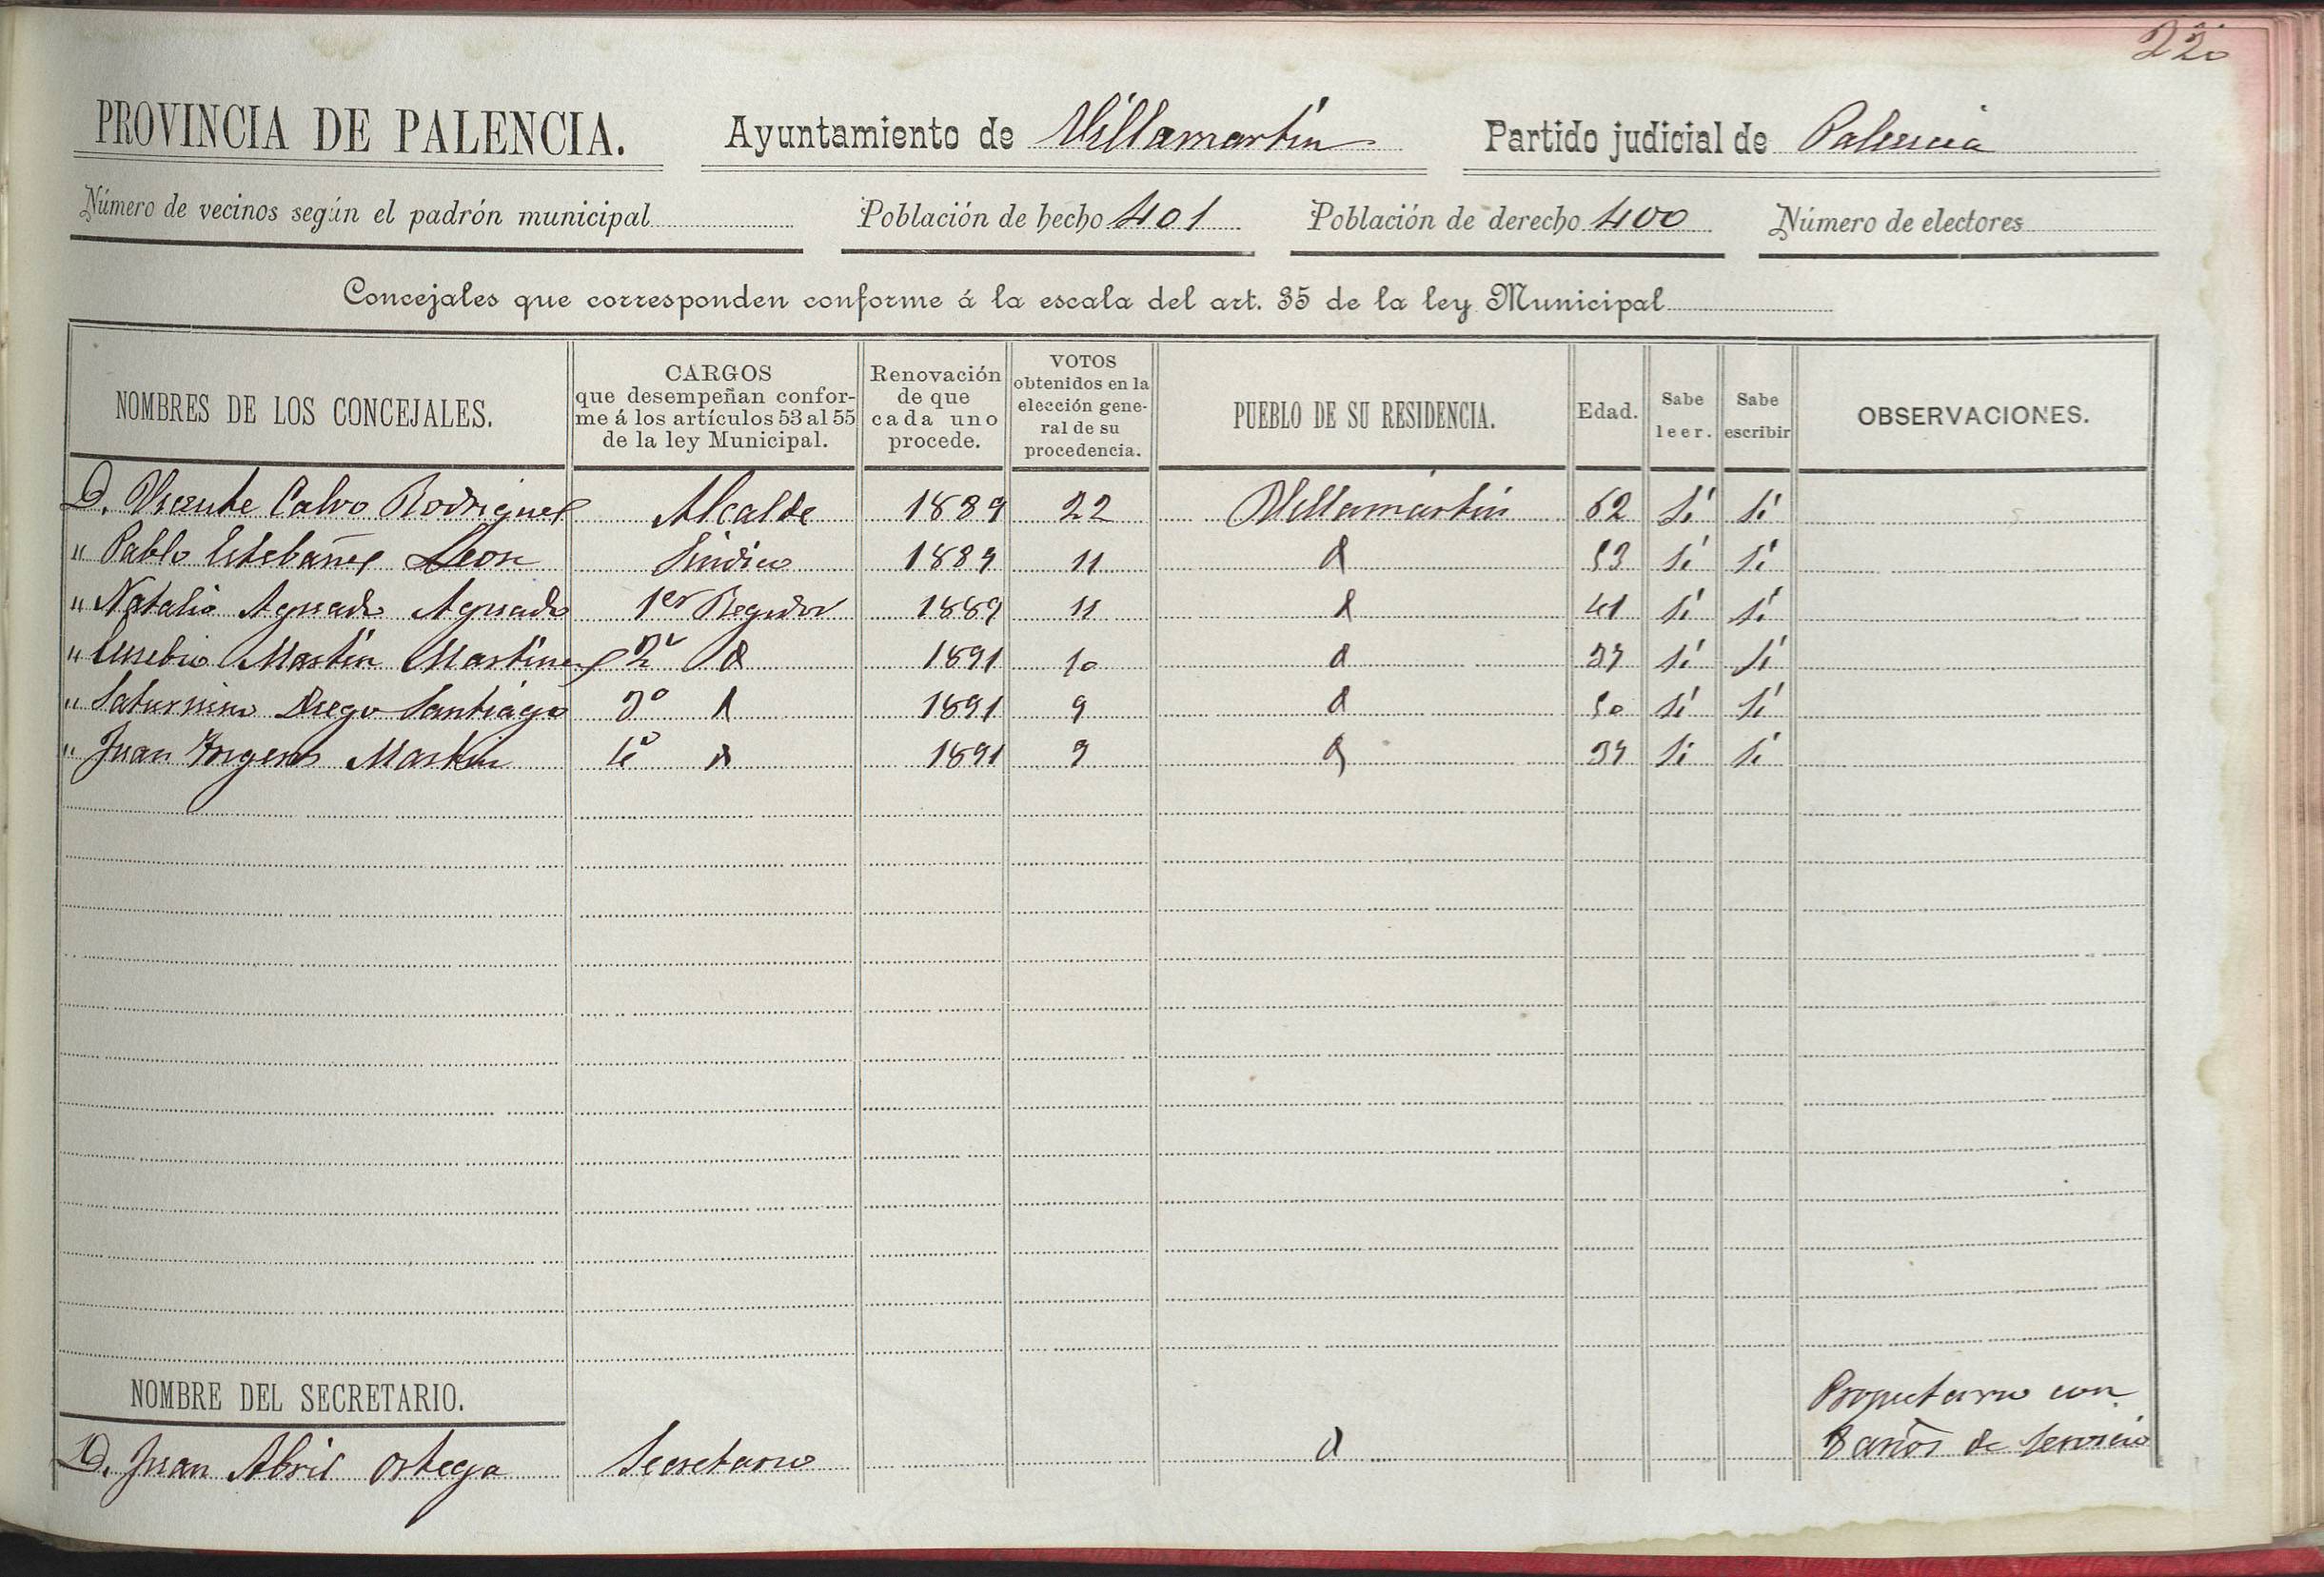 220
PROVINCIA DE PALENCIA. Ayuntamiento de Villamartín Partido judicial de Palencia
Número de vecinos según el padrón municipal Población de hecho 401 Población de derecho 400 Número de electores
Concejales que corresponden conforme á la escala del art. 35 de la ley Municipal
NOMBRES DE LOS CONCEJALES. CARGOS que desempeñan conforme á los artículos 53 al 55 de la ley Municipal. Renovación de que cada uno procede. VOTOS obtenidos en la elección general de su procedencia. PUEBLO DE SU RESIDENCIA. Edad. Sabe leer. Sabe escribir OBSERVACIONES.
D. Vicente Calvo Rodriguez Alcalde 1889 22 Villamartín 62 Sí Sí
" Pablo Estebañez Leon Sindico 1889 11 d 53 Sí Sí
" Natalio Aguado Aguado 1er Regidor 1889 11 d 41 Sí Sí
" Eusebio Martín Martínez 2º d 1891 10 d Sí Sí
" Saturnino Diego Santiago 3º d 1891 9 d 50 Sí Sí
" Juan Martin 4º d 1891 9 d Si Sí
NOMBRE DEL SECRETARIO.
D. Juan Abril Ortega Secretario d Propietario con
8 años de Servicio